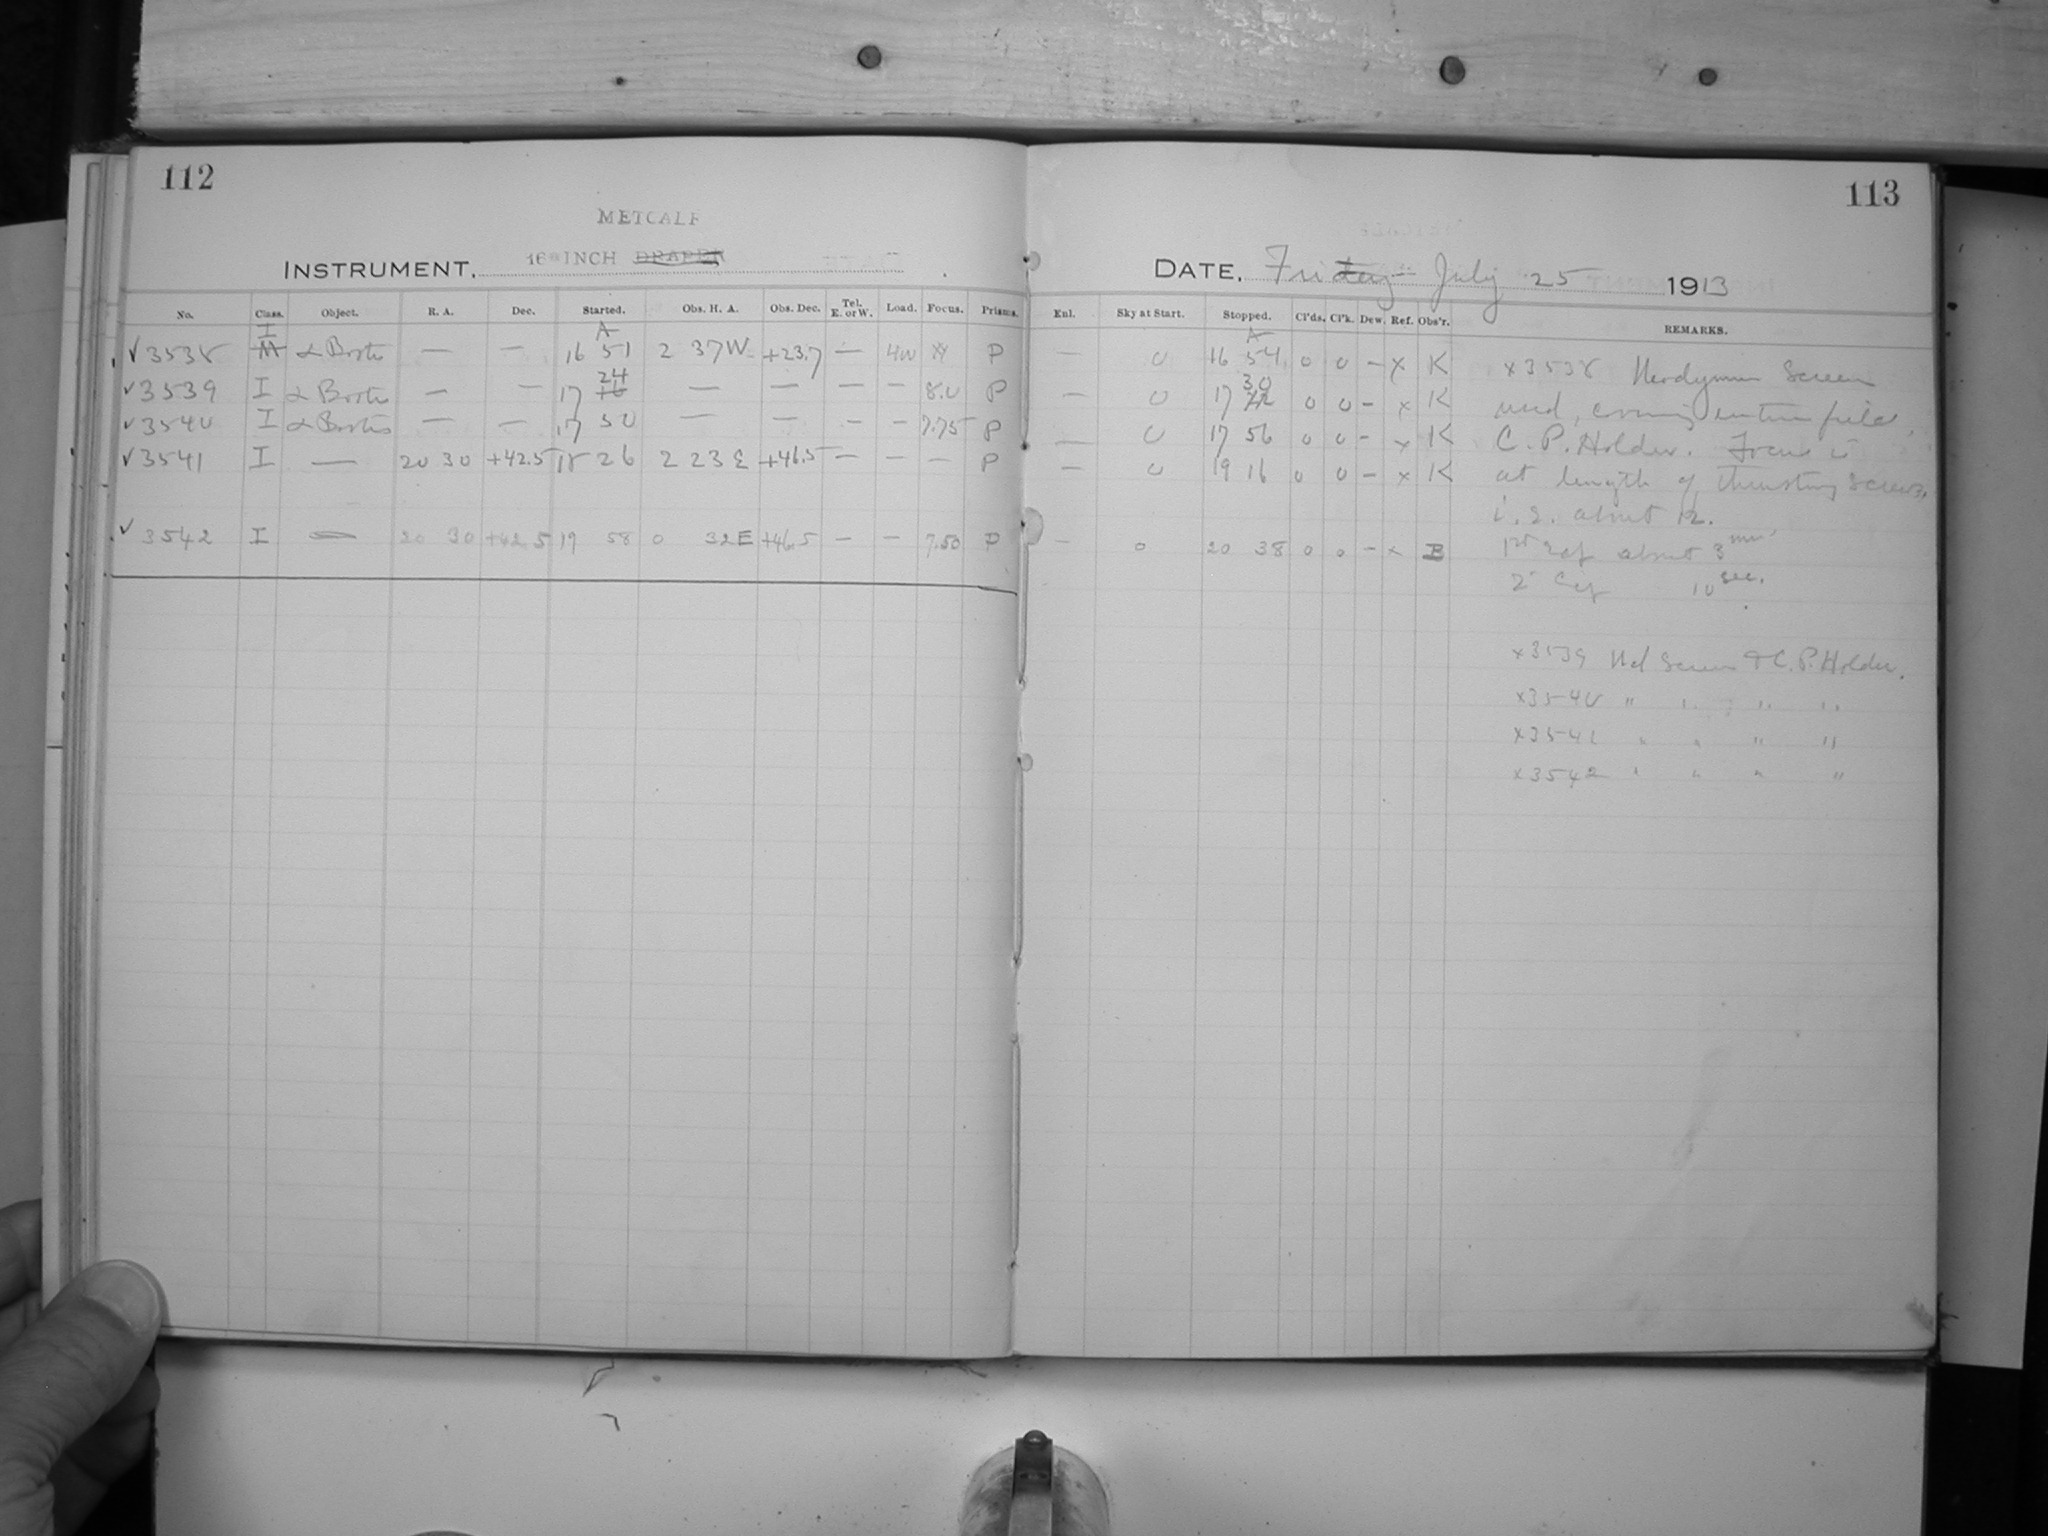 112
METCALF
INSTRUMENT. 16 INCH DRAPER
No. Class. Object. R. A. Dec. Started. Obs. H. A. Obs. Dec. Tel. E. or W. Load. Focus. Prisms.
I A
√3538 M α Bootis — — 16 51 2 37W +23.7 — P
24
√3539 I α Bootis — — 17 16 — — — — 8.0 P
√3540 I α Bootis — — 17 50 — — — — 7.75 P
√3541 I — 20 30 +42.5 18 26 2 23 E +46.5 — — — P
√3542 I — 20 30 +42.5 19 58 0 32E +46.5 — — 7.50 P
113
DATE. Friday July 25 1913
Enl. Sky at Start. Stopped. Cl'ds. Cl'k. Dew. Ref. Obs'r. REMARKS.
A
— 0 16 54 0 0 — x K x3538 Screen
30
— 0 17 0 0 — x K used, covering entire field.
— 0 17 56 0 0 — x K C. P. Holder. Focus is
— 0 19 16 0 0 — x K at length of thrusting screws,
i. e. about 12.
— 0 20 38 0 0 — x B 1st Exp about 3 min.
2 Exp 10 sec.
x3539 Screen & C. P. Holder.
x3540 " " " "
x3541 " " " "
x3542 " " " "